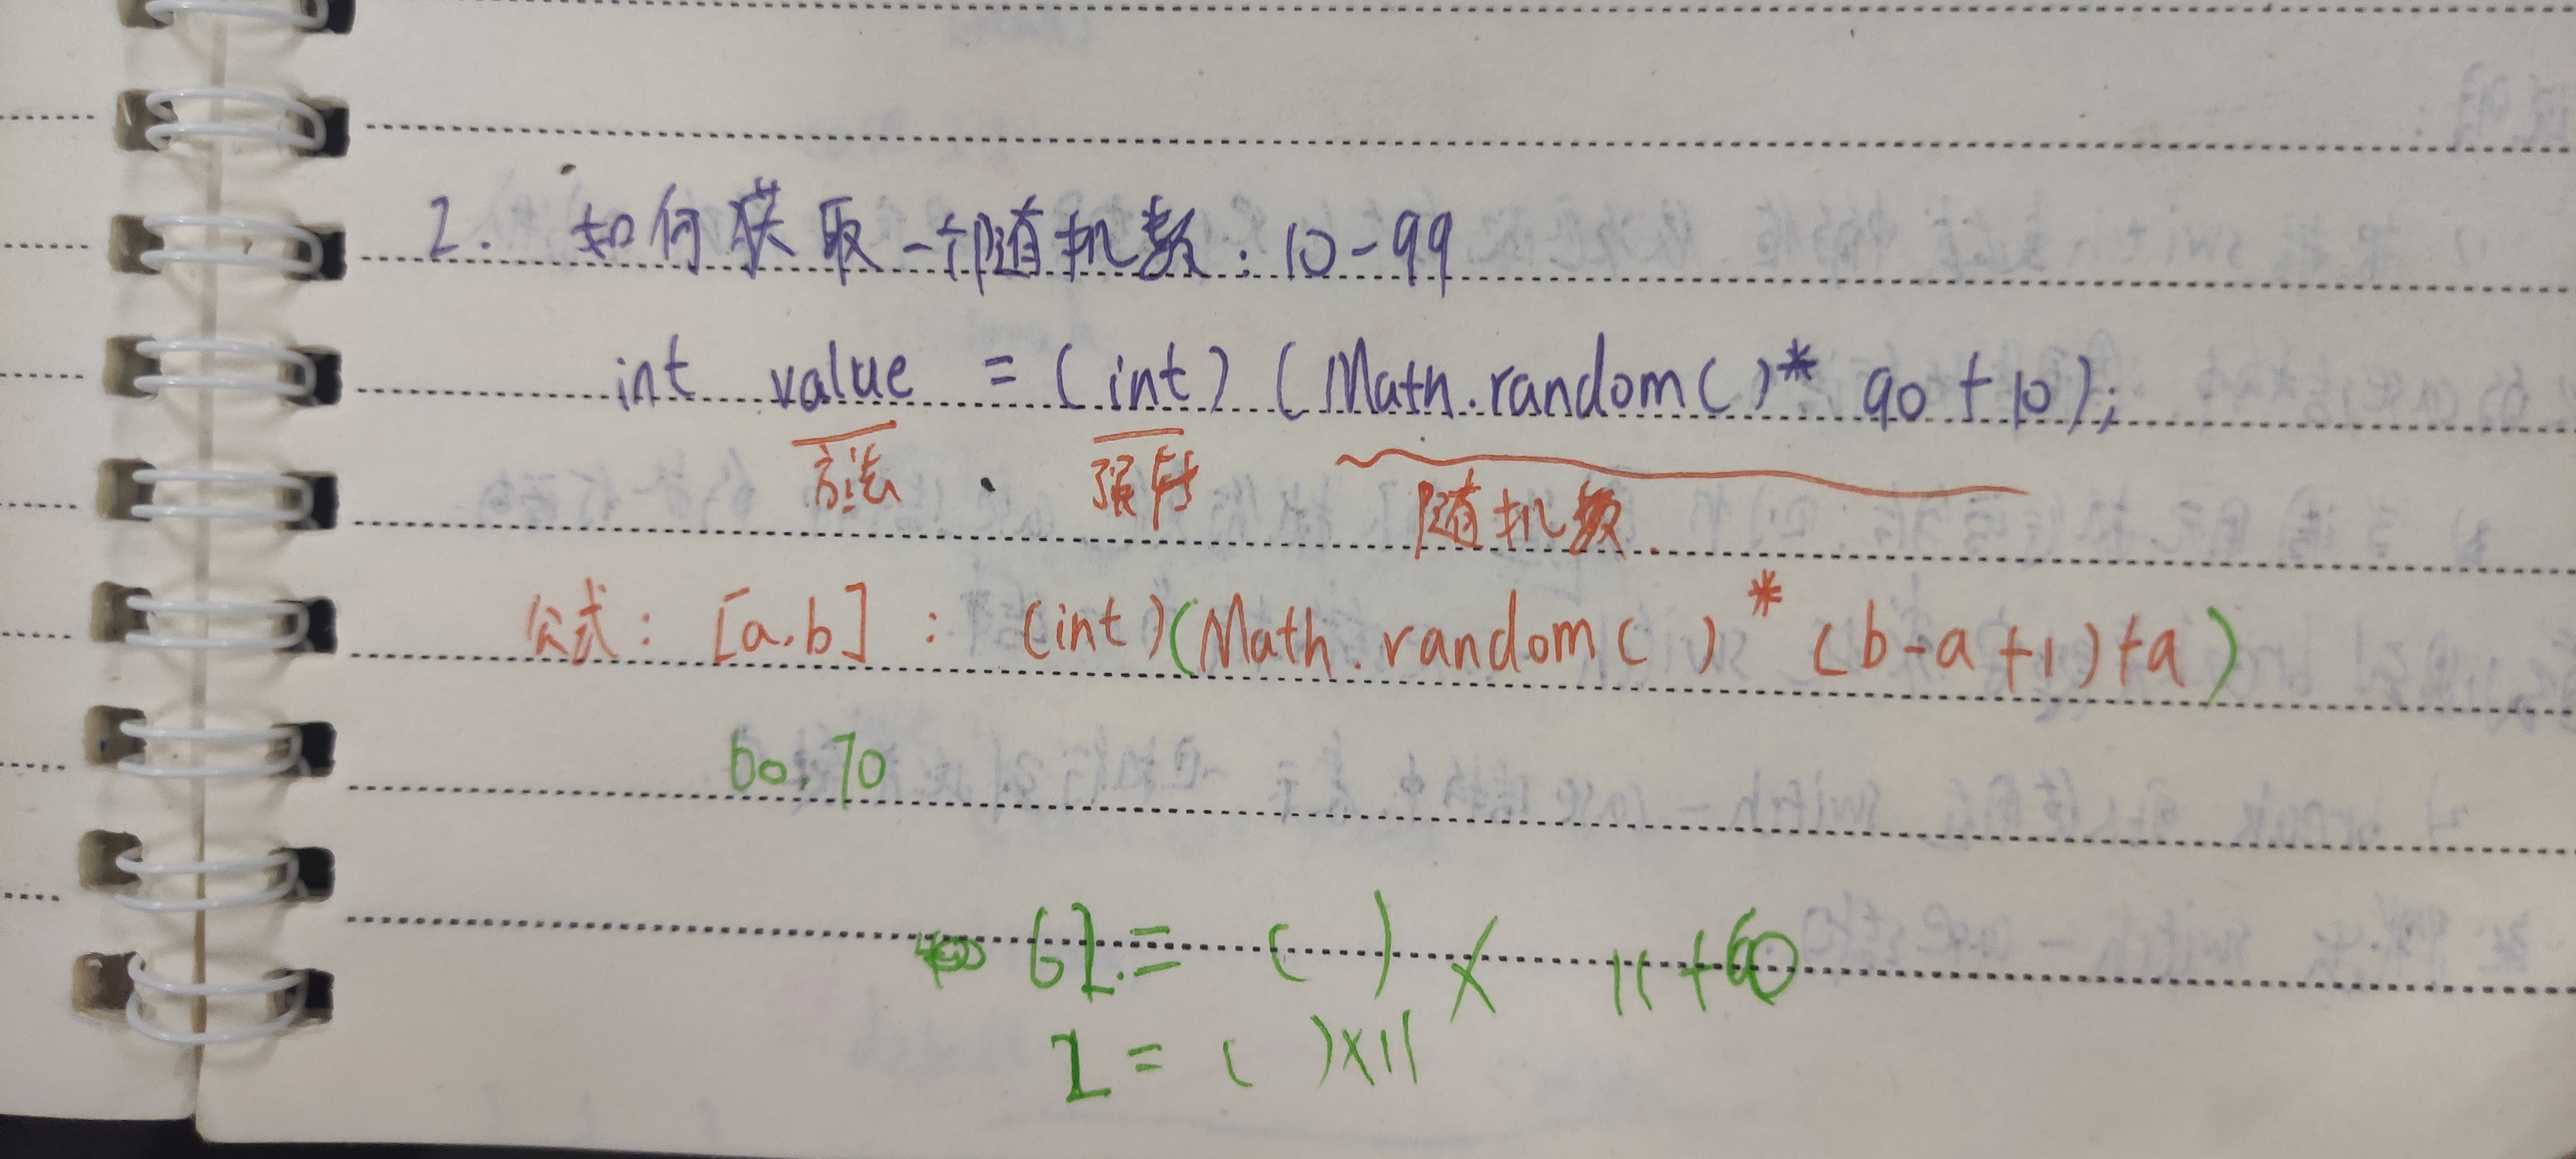 2. 如何获取一个随机数：10-99
int value = (int) (Math.random()* 90 + 10);
方法 强转 随机数.
公式： [a.b] : (int)(Math.random( ) * (b-a+1)+a)
60.70
62.= ( ) × 11+60
2 = ( )×11